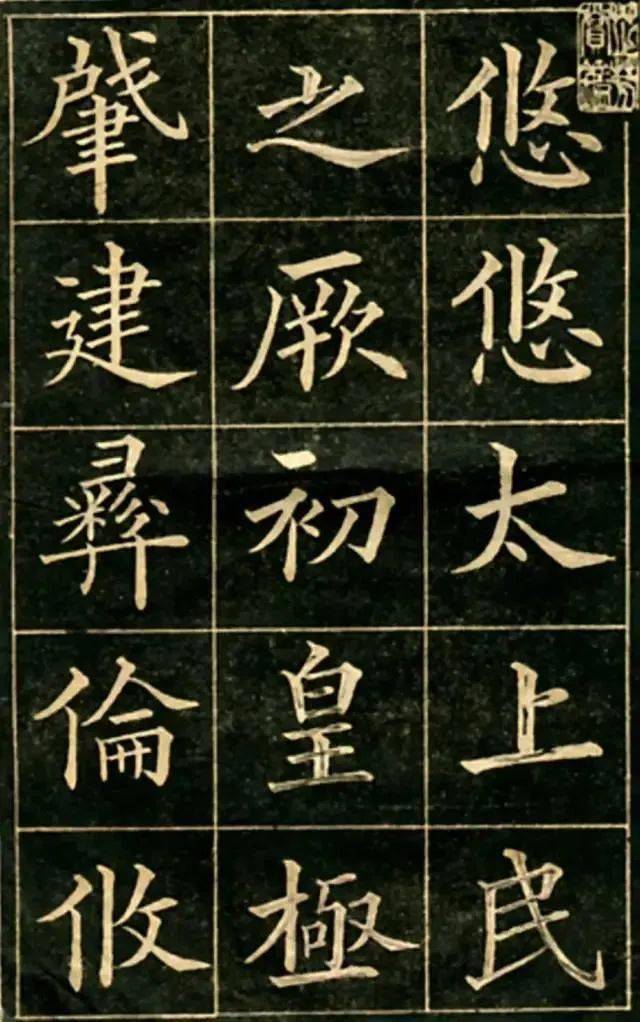 悠悠太上民
之厥初皇極
肈建彝倫攸